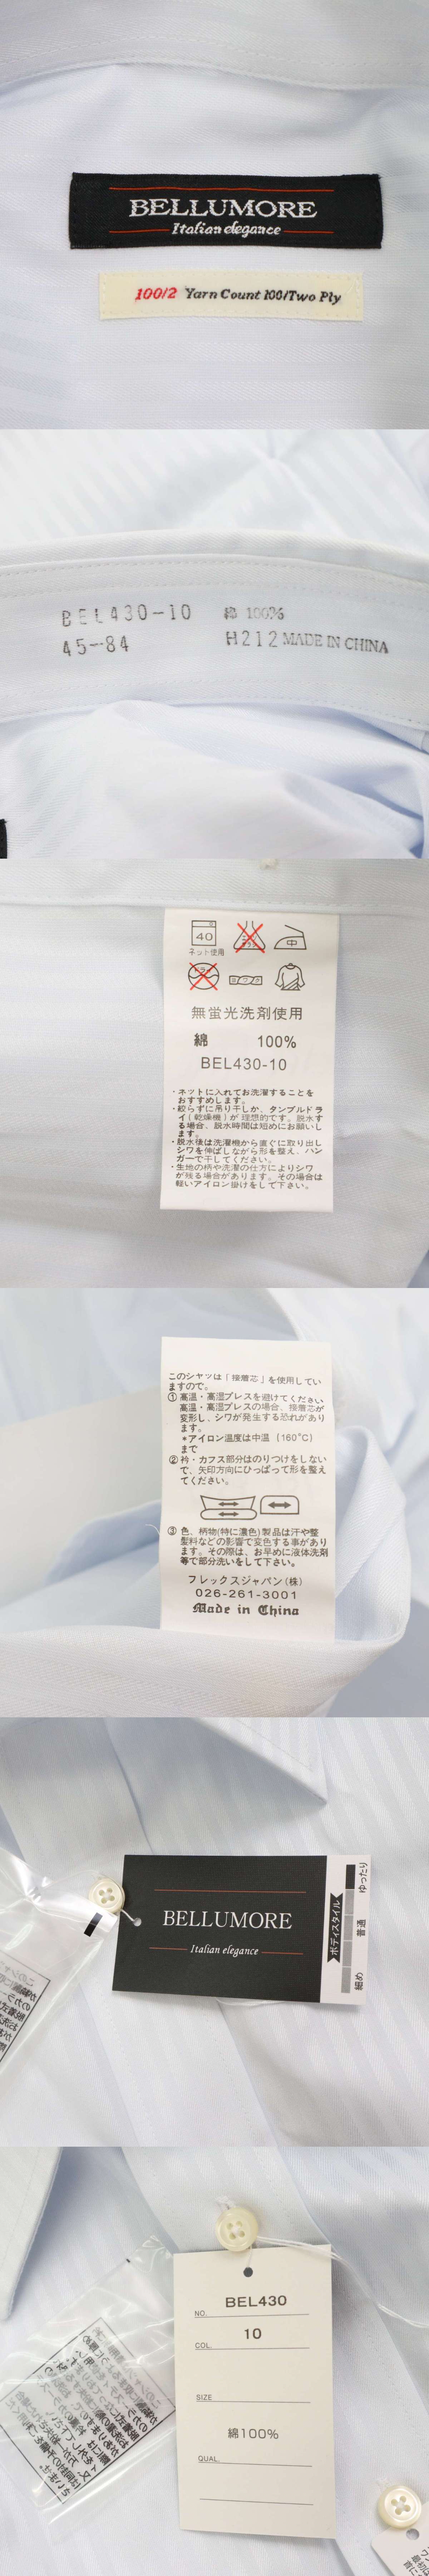 BELLUMORE
Italian elegance
100/2 Yarn Count 100/Two Ply
BEL430-10 綿 100%
45-84 H212 MADE IN CHINA
40
ネット使用
中
無蛍光洗剤使用
綿 100%
BEL430-10
・ネットに入れてお洗濯することを
おすすめします。
・絞らずに吊り干しか、タンブルドラ
イ(乾燥機)が理想的です。脱水す
る場合、脱水時間は短めにお願いし
ます。
・脱水後は洗濯機から直ぐに取り出し
シワを伸ばしながら形を整え、ハン
ガーで干してください。
・生地の柄や洗濯の仕方によりシワ
が残る場合があります。その場合は
軽いアイロン掛けをして下さい。
このシャツは「接着芯」を使用してい
ますので。
① 高温・高湿プレスを避けてください
高温・高湿プレスの場合、接着芯が
変形し、シワが発生する恐れがあり
ます。
*アイロン温度は中温(160°C)
まで
② 衿・カフス部分はのりつけをしない
で、矢印方向にひっぱって形を整え
てください。
③ 色、柄物(特に濃色)製品は汗や整
髪料などの影響で変色する事があり
ます。その際は、お早めに液体洗剤
等で部分洗いをして下さい。
フレックスジャパン(株)
026-261-3001
Made in China
BELLUMORE
Italian elegance
ボディスタイル
ゆったり
普通
細め
NO. BEL430
COL. 10
SIZE
綿100%
QUAL.